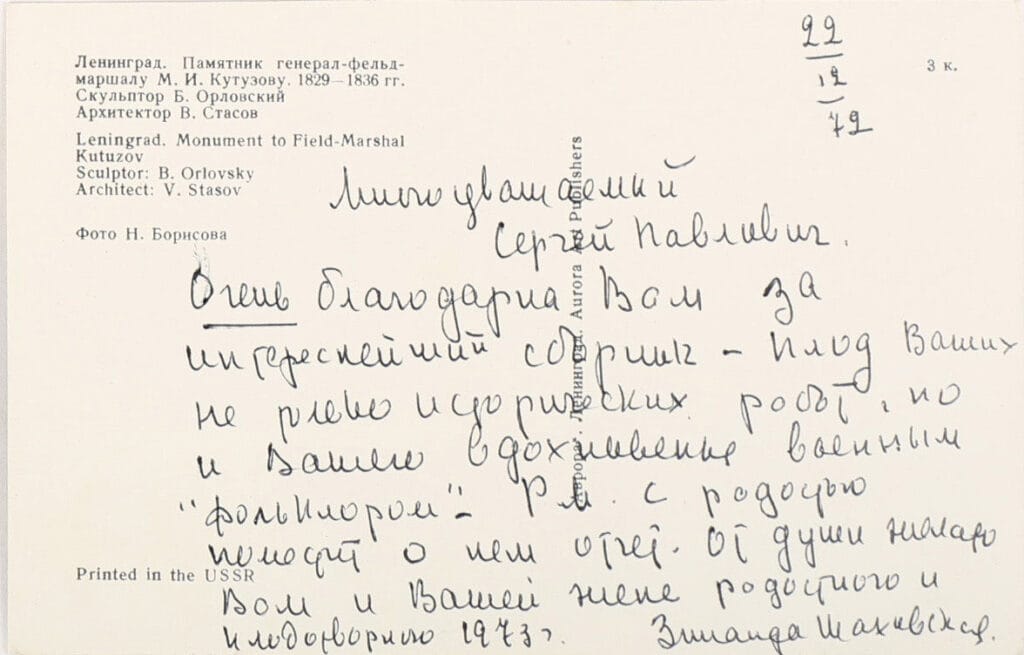 Ленинград. Памятник генерал-фельд-
маршалу М. И. Кутузову. 1829—1836 гг.
Скульптор Б. Орловский
Архитектор В. Стасов
Leningrad. Monument to Field-Marshal
Kutuzov
Sculptor: B. Orlovsky
Architect: V. Stasov
Фото Н. Борисова
22
12
72
3 к.
Многоуважаемый
Сергей Павлович.
Очень благодарна Вам за
интереснейший сборник – плод Ваших
не исторических работ, но
и Вашего вдохновенья военным
"фольклором" – Р.М. с радостью
поместит о нем отчет. От души желаю
Вам и Вашей жене радостного и
плодотворного 1973 г. Зинаида Шаховская.
"Аврора". Ленинград. Aurora Art Publishers
Printed in the USSR